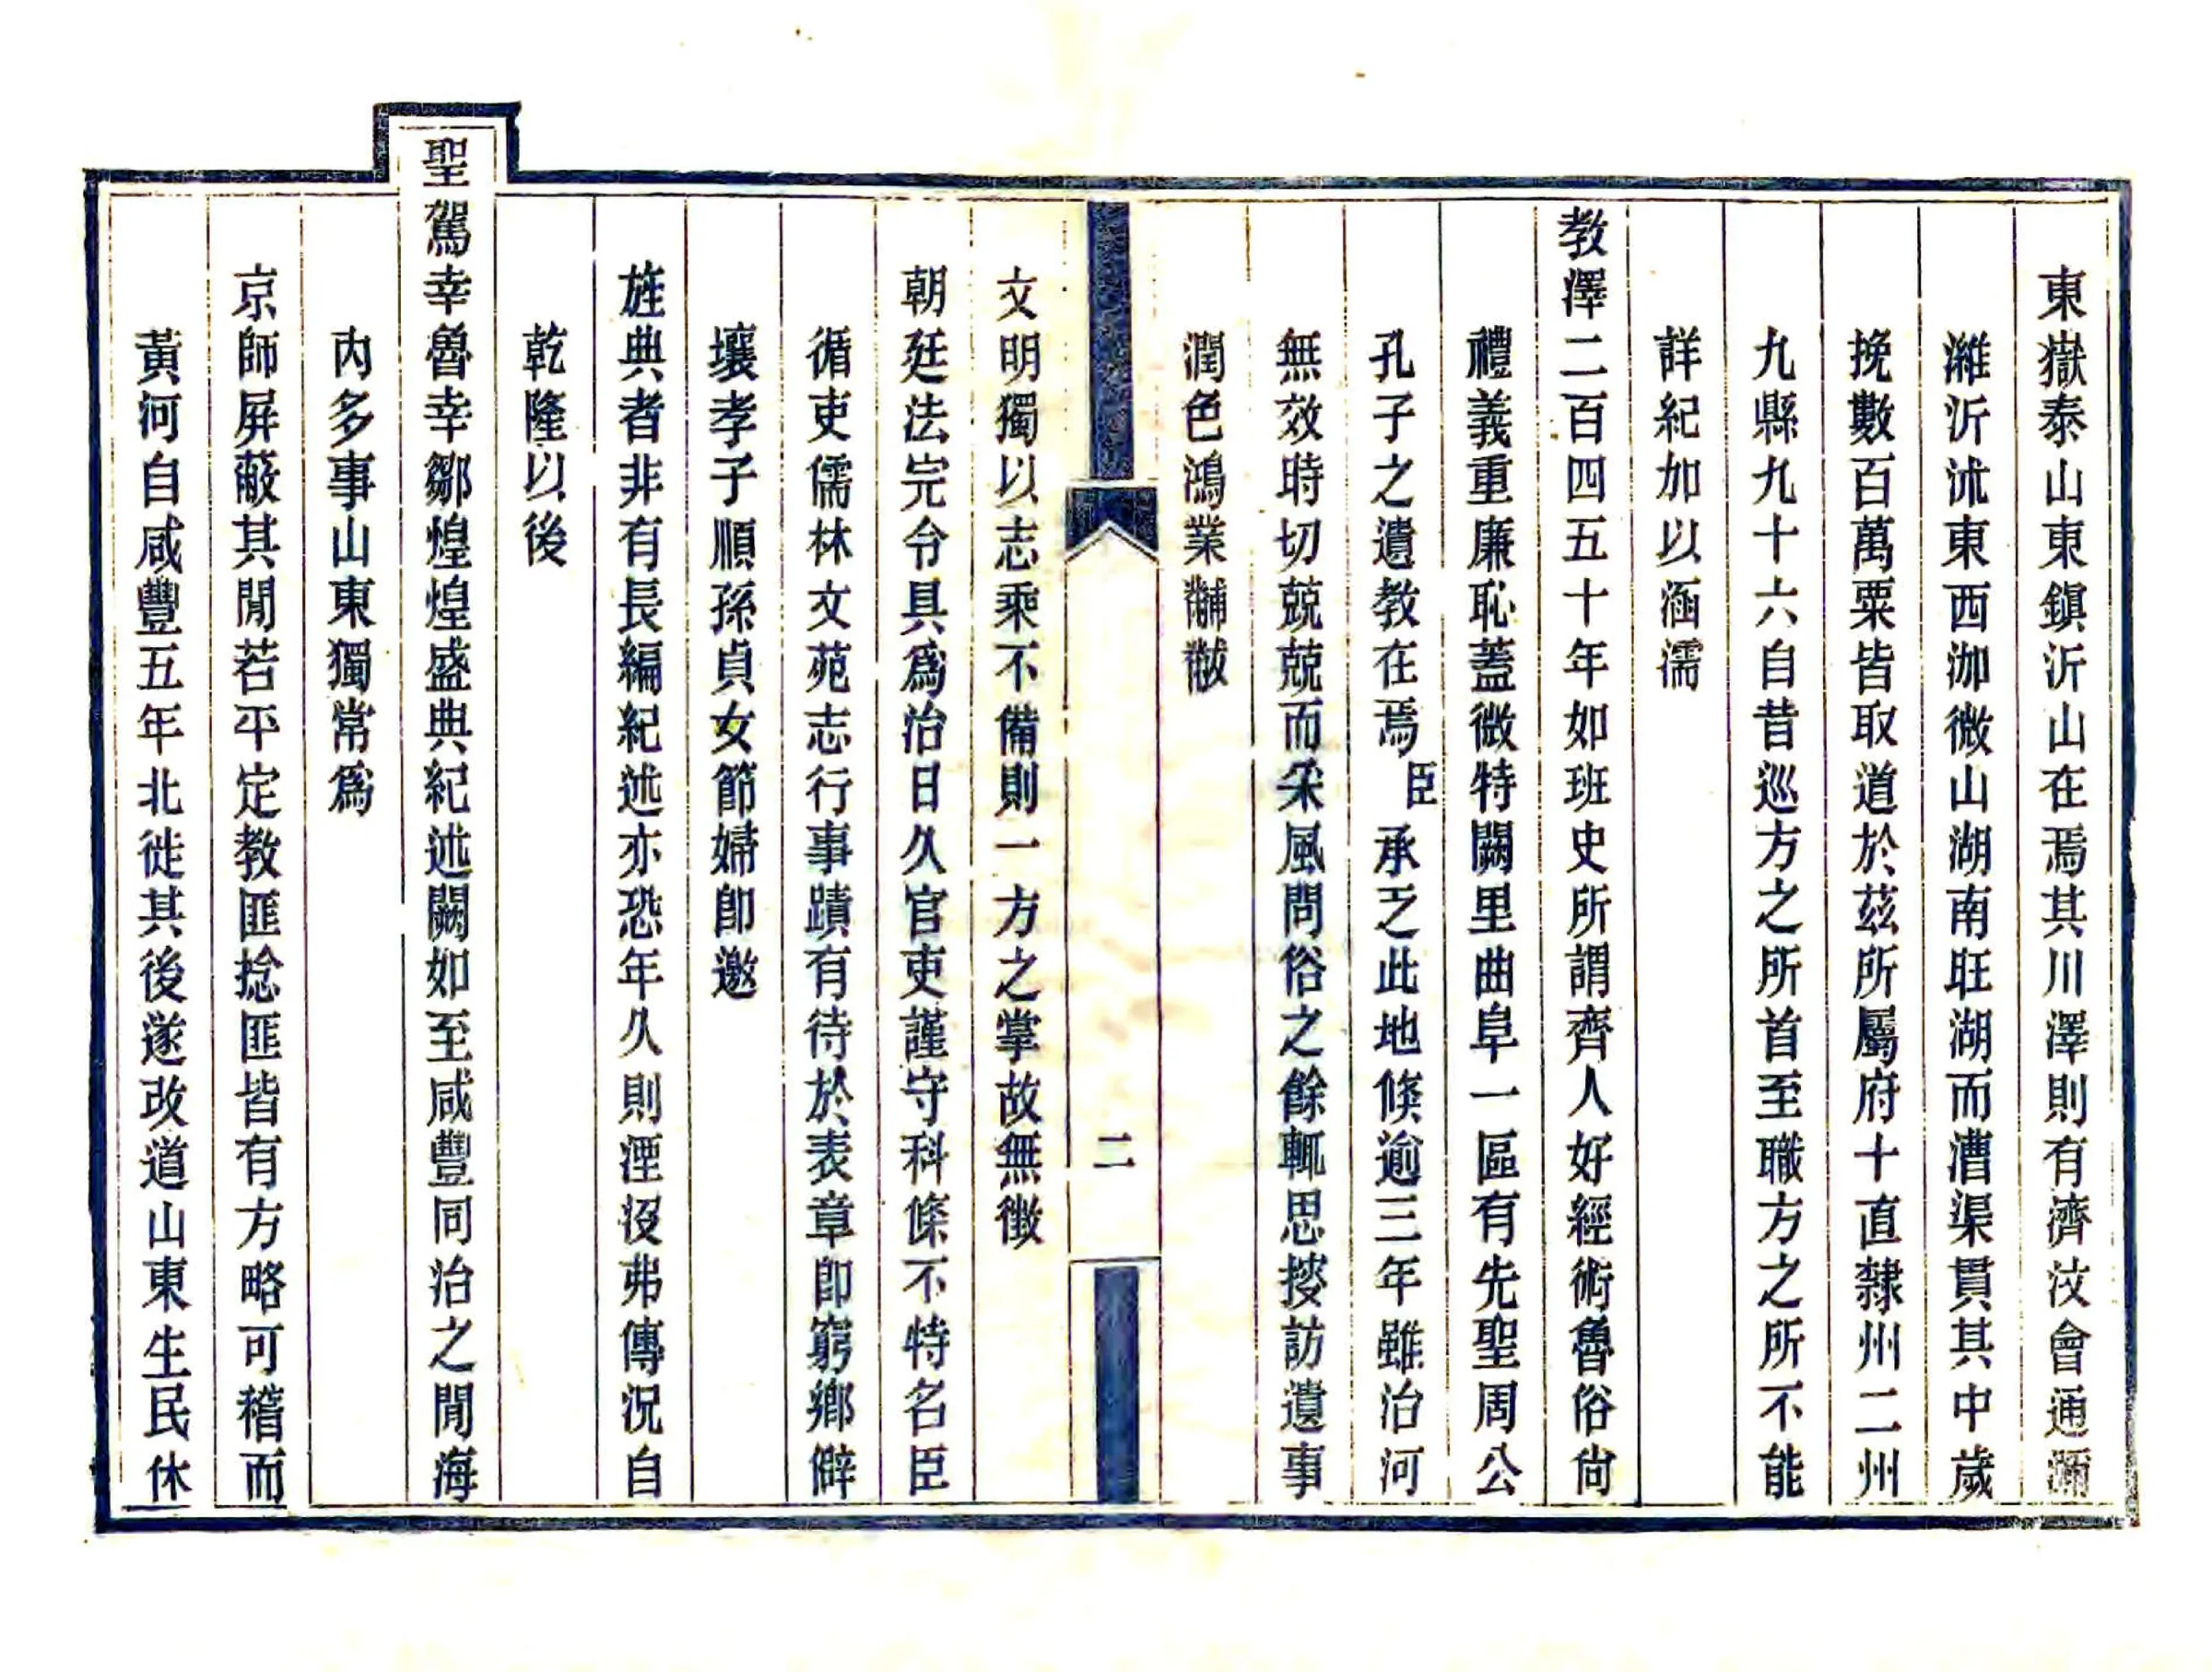 東嶽泰山東鎭沂山在焉其川澤則有濟汶會通瀰
濰沂沭東西泇微山湖南旺湖而漕渠貫其中歲
挽數百萬粟皆取道於茲所屬府十直隸州二州
九縣九十六自昔巡方之所首至職方之所不能
詳紀加以涵濡
教澤二百四五十年如班史所謂齊人好經術魯俗尙
禮義重廉恥蓋微特闕里曲阜一區有先聖周公
孔子之遺教在焉臣承乏此地倏逾三年雖治河
無效時切兢兢而采風問俗之餘輒思搜訪遺事
潤色鴻業黼黻
二
文明獨以志乘不備則一方之掌故無徵
朝廷法完令具爲治日久官吏謹守科條不特名臣
循吏儒林文苑志行事蹟有待於表章卽窮鄉僻
壤孝子順孫貞女節婦卽邀
旌典者非有長編紀述亦恐年久則湮沒弗傳況自
乾隆以後
聖駕幸魯幸鄒煌煌盛典紀述闕如至咸豐同治之閒海
內多事山東獨常爲
京師屏蔽其閒若平定教匪捻匪皆有方略可稽而
黃河自咸豐五年北徙其後遂改道山東生民休